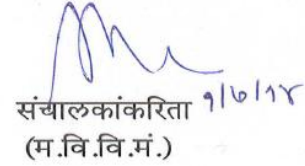 संचालकांकरिता १/७/१४
(म.वि.वि.मं.)